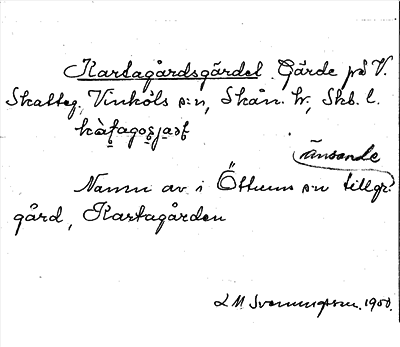 Kartagårdsgärdet Gärde på V.
Skatteg. Vinköls s:n, Skån. hr, Skb. l.
änsande
Namn av i Öttum s:n tillgr.
gård, Kartagården
L M Svenungsson. 1950.